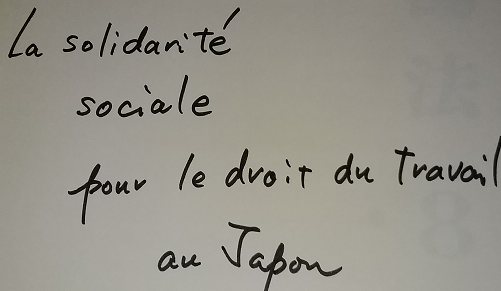 La solidarité
sociale
pour le droit du travail
au Japon